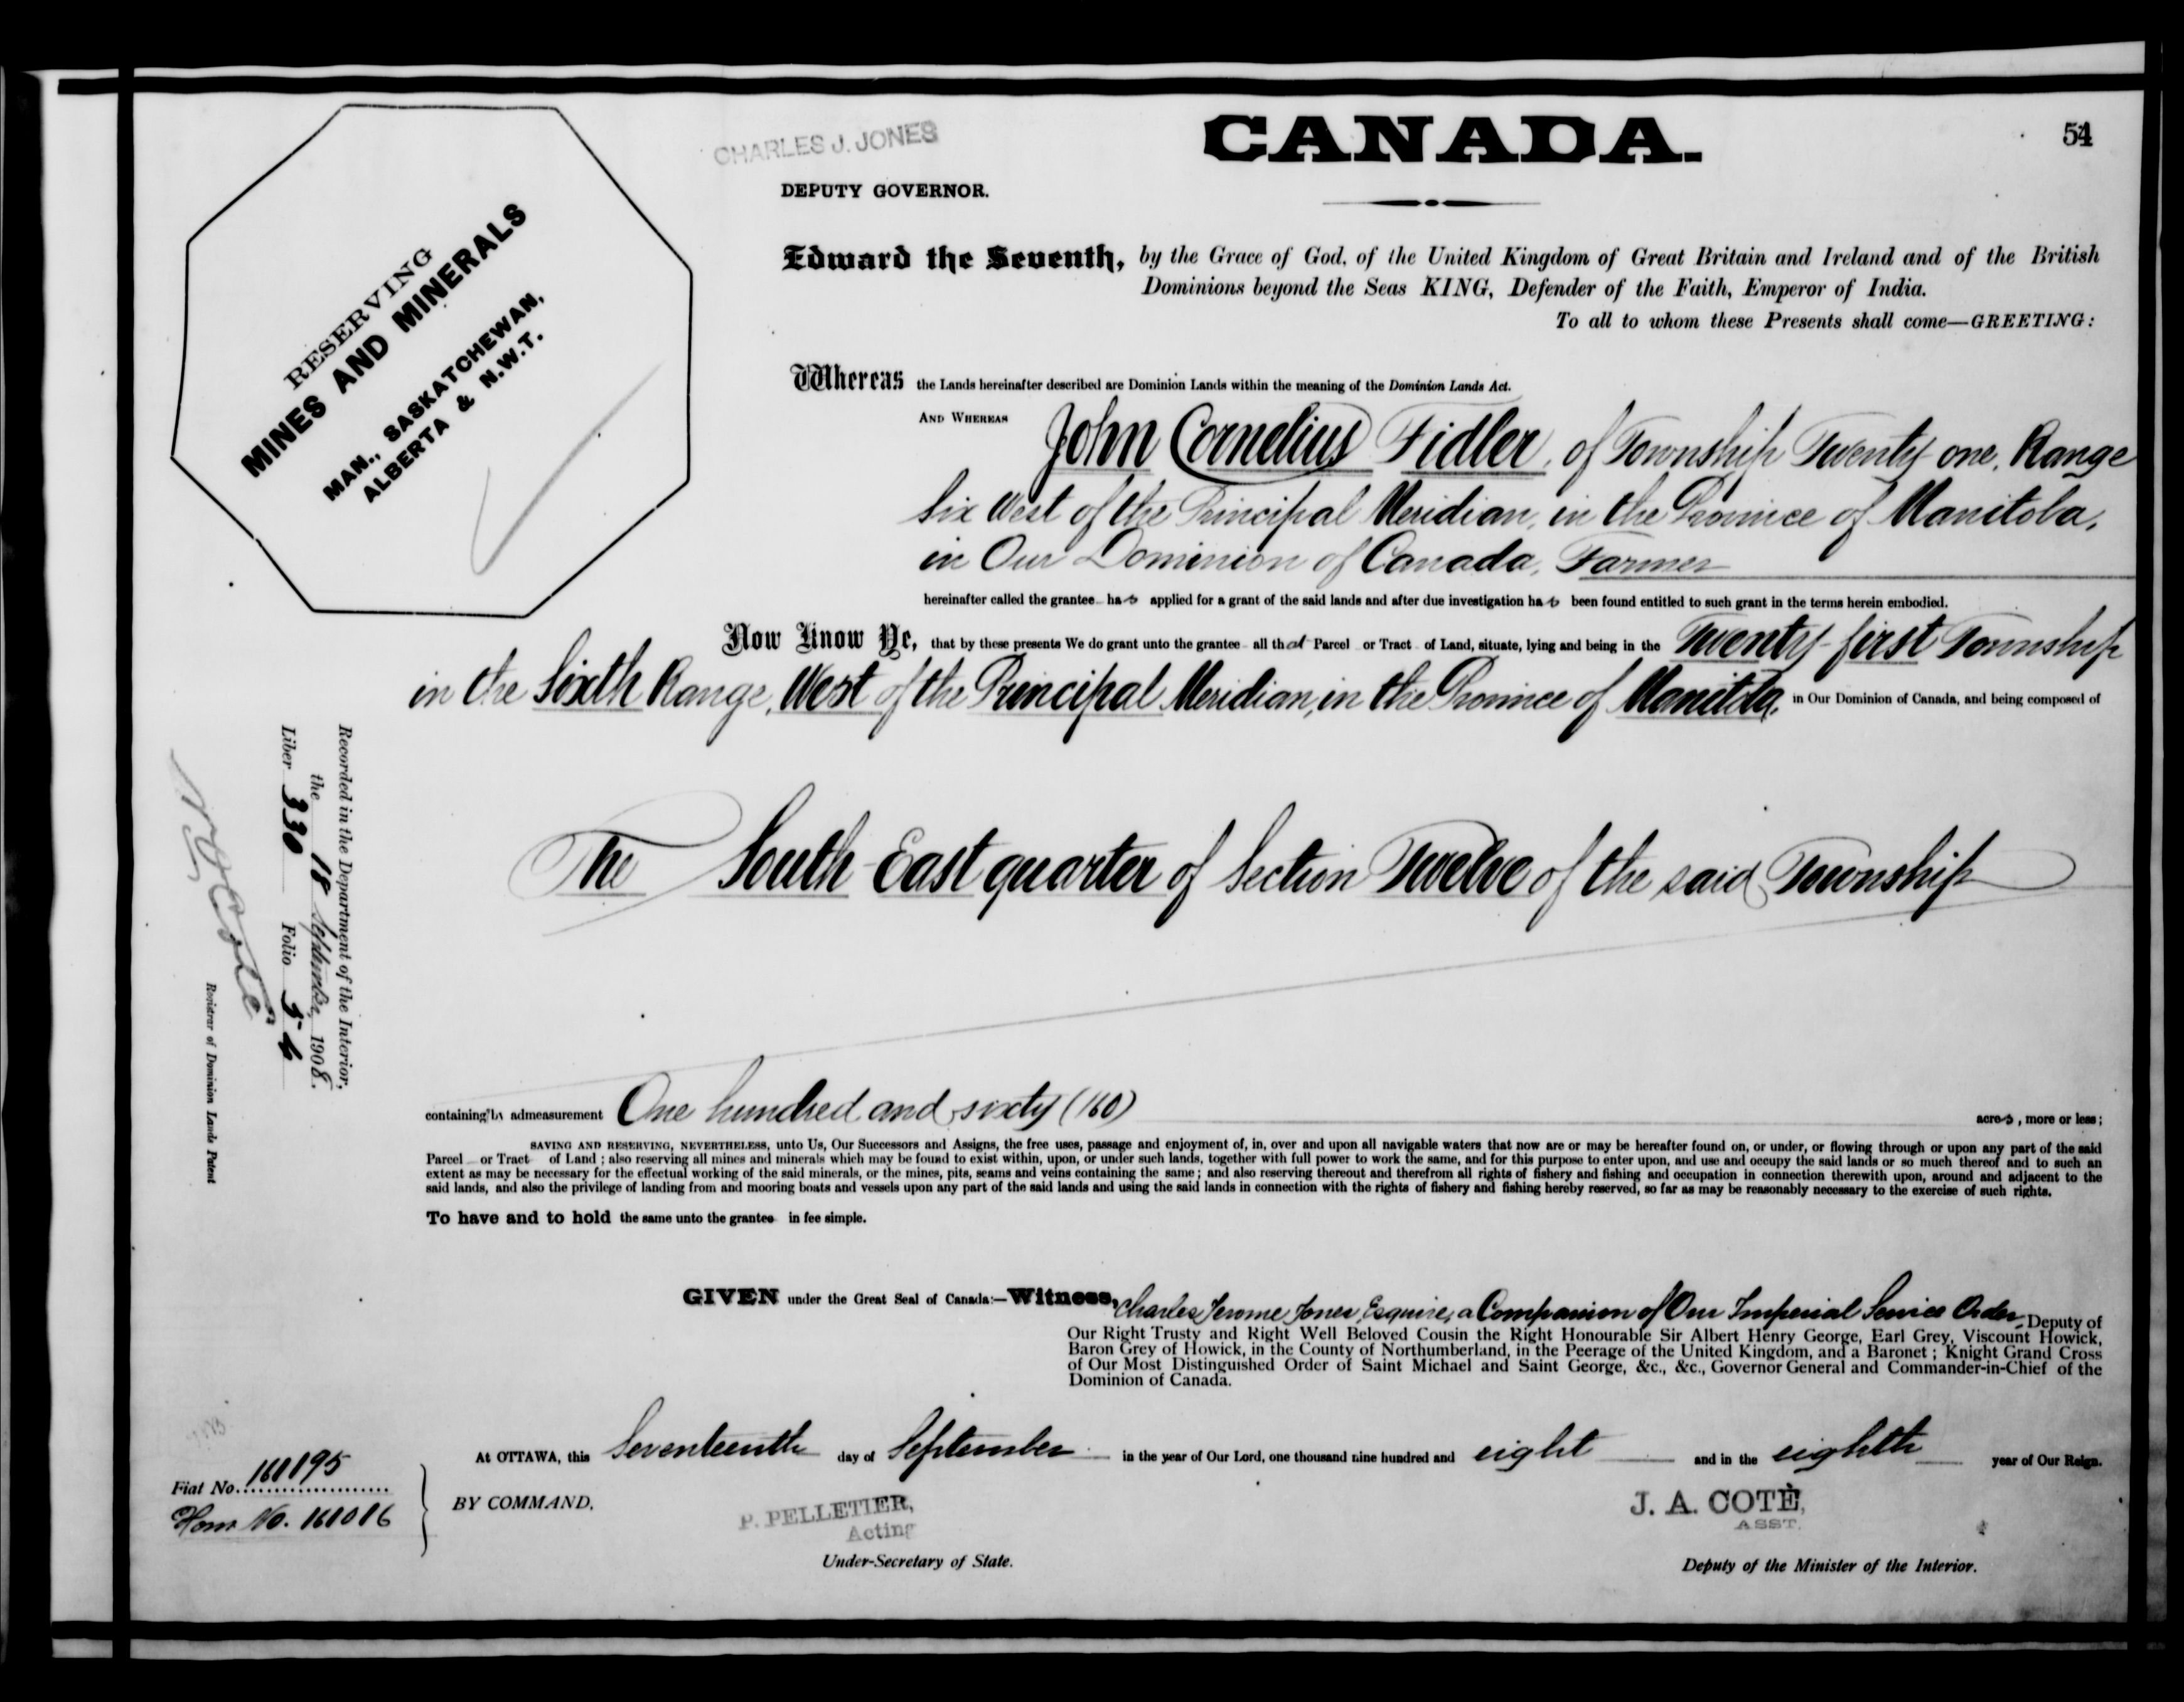 CANADA.
54
CHARLES J. JONES
DEPUTY GOVERNOR.
RESERVING
MINES AND MINERALS
MAN., SASKATCHEWAN,
ALBERTA & N.W.T.
Edward the Seventh, by the Grace of God, of the United Kingdom of Great Britain and Ireland and of the British
Dominions beyond the Seas KING, Defender of the Faith, Emperor of India.
To all to whom these Presents shall come—GREETING:
Whereas the Lands hereinafter described are Dominion Lands within the meaning of the Dominion Lands Act.
AND WHEREAS John Cornelius Fidler, of Township Twenty one, Range
Six West of the Principal Meridian, in the Province of Manitoba,
in Our Dominion of Canada, Farmer
hereinafter called the grantee has applied for a grant of the said lands and after due investigation has been found entitled to such grant in the terms herein embodied.
Now Know Ye, that by these presents We do grant unto the grantee all that Parcel or Tract of Land, situate, lying and being in the Twenty-first Township
in the Sixth Range, West of the Principal Meridian, in the Province of Manitoba, in Our Dominion of Canada, and being composed of
The South East quarter of Section Twelve of the said Township
Recorded in the Department of the Interior,
the 18 September 1908.
Liber 330 Folio 54
Registrar of Dominion Lands Patent
containing by admeasurement One hundred and sixty (160) acres, more or less;
SAVING AND RESERVING, NEVERTHELESS, unto Us, Our Successors and Assigns, the free uses, passage and enjoyment of, in, over and upon all navigable waters that now are or may be hereafter found on, or under, or flowing through or upon any part of the said
Parcel or Tract of Land; also reserving all mines and minerals which may be found to exist within, upon, or under such lands, together with full power to work the same, and for this purpose to enter upon, and use and occupy the said lands or so much thereof and to such an
extent as may be necessary for the effectual working of the said minerals, or the mines, pits, seams and veins containing the same; and also reserving thereout and therefrom all rights of fishery and fishing and occupation in connection therewith upon, around and adjacent to the
said lands, and also the privilege of landing from and mooring boats and vessels upon any part of the said lands and using the said lands in connection with the rights of fishery and fishing hereby reserved, so far as may be reasonably necessary to the exercise of such rights.
To have and to hold the same unto the grantee in fee simple.
GIVEN under the Great Seal of Canada:—Witness, Charles Jerome Jones, Esquire, a Companion of Our Imperial Service Order, Deputy of
Our Right Trusty and Right Well Beloved Cousin the Right Honourable Sir Albert Henry George, Earl Grey, Viscount Howick,
Baron Grey of Howick, in the County of Northumberland, in the Peerage of the United Kingdom, and a Baronet; Knight Grand Cross
of Our Most Distinguished Order of Saint Michael and Saint George, &c., &c., Governor General and Commander-in-Chief of the
Dominion of Canada.
At OTTAWA, this Seventeenth day of September in the year of Our Lord, one thousand nine hundred and eight and in the eighth year of Our Reign.
Fiat No. 161195
Hom No. 161016
BY COMMAND,
P. PELLETIER,
Acting
Under-Secretary of State.
J. A. COTÉ,
ASST.
Deputy of the Minister of the Interior.